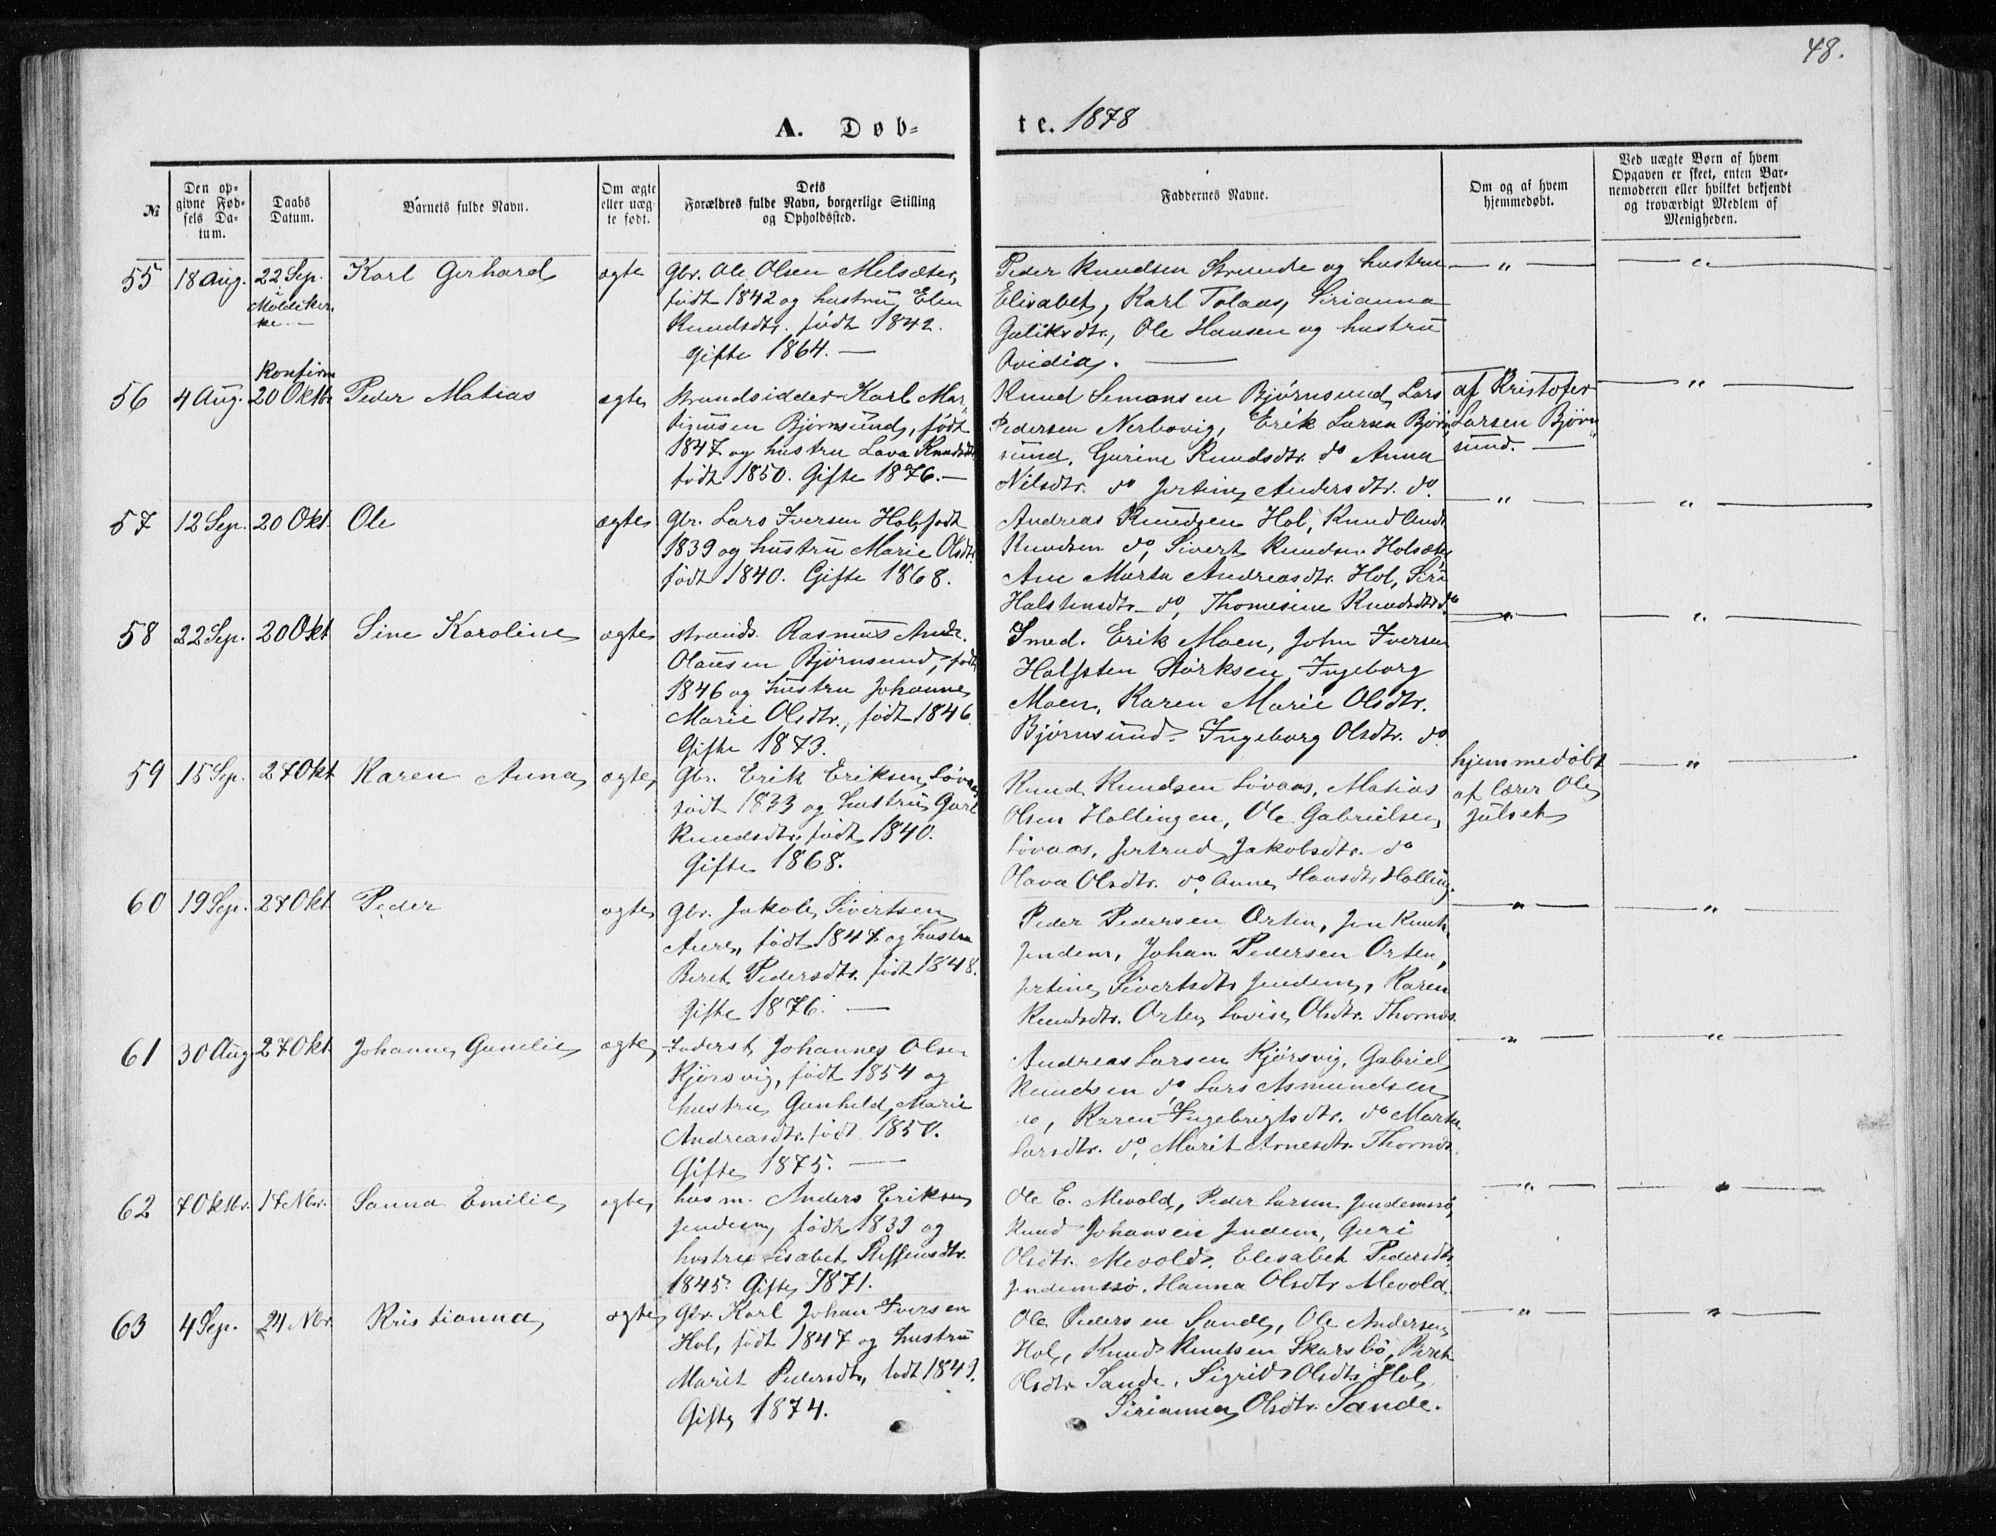 48.
A. Døb-
te. 1878
№
Den op-
givne Fød-
sels Da-
tum.
Daabs
Datum.
Barnets fulde Navn.
Om ægte
eller uæg-
te født.
Dets
Forældres fulde Navn, borgerlige Stilling
og Opholdssted.
Faddernes Navne.
Om og af hvem
hjemmedøbt.
Ved uægte Børn af hvem
Opgaven er skeet, enten Bar-
nemoderen eller hvilket bekjendt
og troværdigt Medlem af
Menigheden.
55 18 Aug. 22 Sep. Karl Gerhard ægte Gbr. Ole Olsen Melsæter,
i Moldekir-
ke. —
født 1842 og hustru Elen
Knudsdtr. født 1842.
Gifte 1864. —
Peder Knudsen Strande og hustru — " — — " —
Elisabet, Karl Tolaas, Sirianna
Guliksdtr., Ole Hansen og hustru
Ovidia. —
56 4 Aug. Konfirm
20 Oktbr Peder Matias ægte Strandsidder Karl Mar-
tinusen Bjørnsund, født
1847 og hustru Lava Knudsdtr
født 1850. Gifte 1876. —
Knud Semonsen Bjørnsund, Lars af Kristofer — " —
Pedersen Nerbøvig, Erik Larsen Bjørn Larsen Bjørn
sund, Gurine Knudsdtr. do Anna sund. —
Nilsdtr. do Jertine Andersdtr. do.
57 12 Sep. 20 Okt. Ole ægte Gbr. Lars Iversen Hol, født
1839 og hustru Marie Olsdtr.
født 1840. Gifte 1868.
Andreas Knudsen Hol, Knud Andr. — " — — " —
Knudsen do, Sivert Knudsen Holsæter
Ane Marta Andreasdtr. Hol, Siri
Halstensdtr. do, Thomesine Knudsdtr do
58 22 Sep. 20 Okt Sine Karoline ægte strands. Rasmus Andr.
Olausen Bjørnsund, født
1846 og hustru Johanne
Marie Olsdtr., født 1846.
Gifte 1873.
Smed. Erik Moen, John Iversen — " — — " —
Halsten Størksen Ingeborg
Moen, Karen Marie Olsdtr.
Bjørnsund. Ingeborg Olsdtr. do.
59 15 Sep. 27 Okt Karen Anna ægte Gbr. Erik Eriksen Løvaas
født 1833 og hustru Guri
Knudsdtr. født 1840.
Gifte 1868.
Knud Knudsen Løvaas, Matias hjemmedøbt — " —
Olsen Hollingen, Ole Gabrielsen af lærer Ole
Løvaas, Jertrud Jakobsdtr. do Julset
Olava Olsdtr. do, Anne Hansdtr Holling.
60 19 Sep. 27 Okt Peder ægte Gbr. Jakob Sivertsen
Aure, født 1847 og hustru
Beret Pedersdtr. født 1848.
Gifte 1876. —
Peder Pedersen Orten, Jon Knuts. — " — — " —
Jendem, Johan Pedersen Orten,
Jertine Sivertsdtr Jendem, Karen
Knudsdtr. Orten Lovise Olsdtr. Thornæs
61 30 Aug 27 Okt. Johanne Gunelie ægte Inderst Johannes Olsen
Kjørsvig, født 1854 og
hustru Gunhild Marie
Andreasdtr. født 1850.
Gifte 1875. —
Andreas Larsen Kjørsvig, Gabriel — " — — " —
Knudsen do, Lars Asmundsen
do, Karen Ingebrigtsdtr. do Marta
Larsdtr. do, Marit Arnesdtr. Thornæs.
62 7 Oktbr. 17 Nbr. Sanna Emilie ægte husm. Anders Eriksen
Jendem, født 1839 og
hustru Lisabet Steffensdtr.
1845. Gifte 1871.
Ole E. Mevold, Peder Larsen Jendemssø, — " — — " —
Knud Johansen Jendem, Guri
Olsdtr. Mevold, Elisabet Pedersdtr
Jendemssø, Hanna Olsdtr Mevold.
63 4 Sep. 24 Nbr. Kristianna ægte Gbr. Karl Johan Iversen
Hol, født 1847 og hustru
Marit Pedersdtr, født 1849.
Gifte 1874.
Ole Pedersen Sande, Ole Andersen — " — — " —
Hol, Knud Knutsen Skarsbø, Beret
Olsdtr Sande, Sigrid Olsdtr Hol,
Sirianna Olsdtr. Sande.